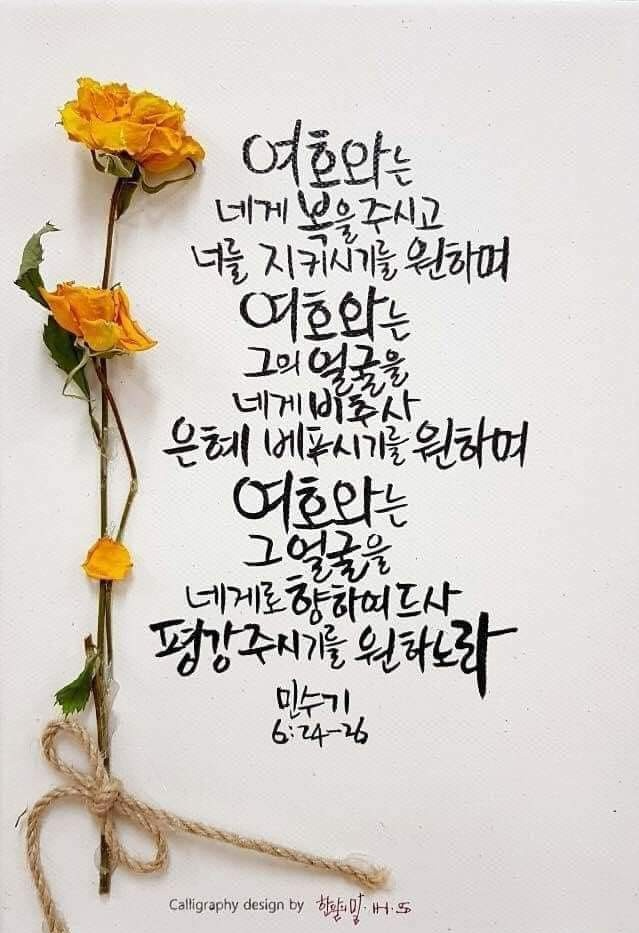 여호와는
네게 복을 주시고
너를 지키시기를 원하며
여호와는
그의 얼굴을
네게 비추사
은혜 베푸시기를 원하며
여호와는
그 얼굴을
네게로 향하여 드사
평강 주시기를 원하노라
민수기
6:24-26
Calligraphy design by